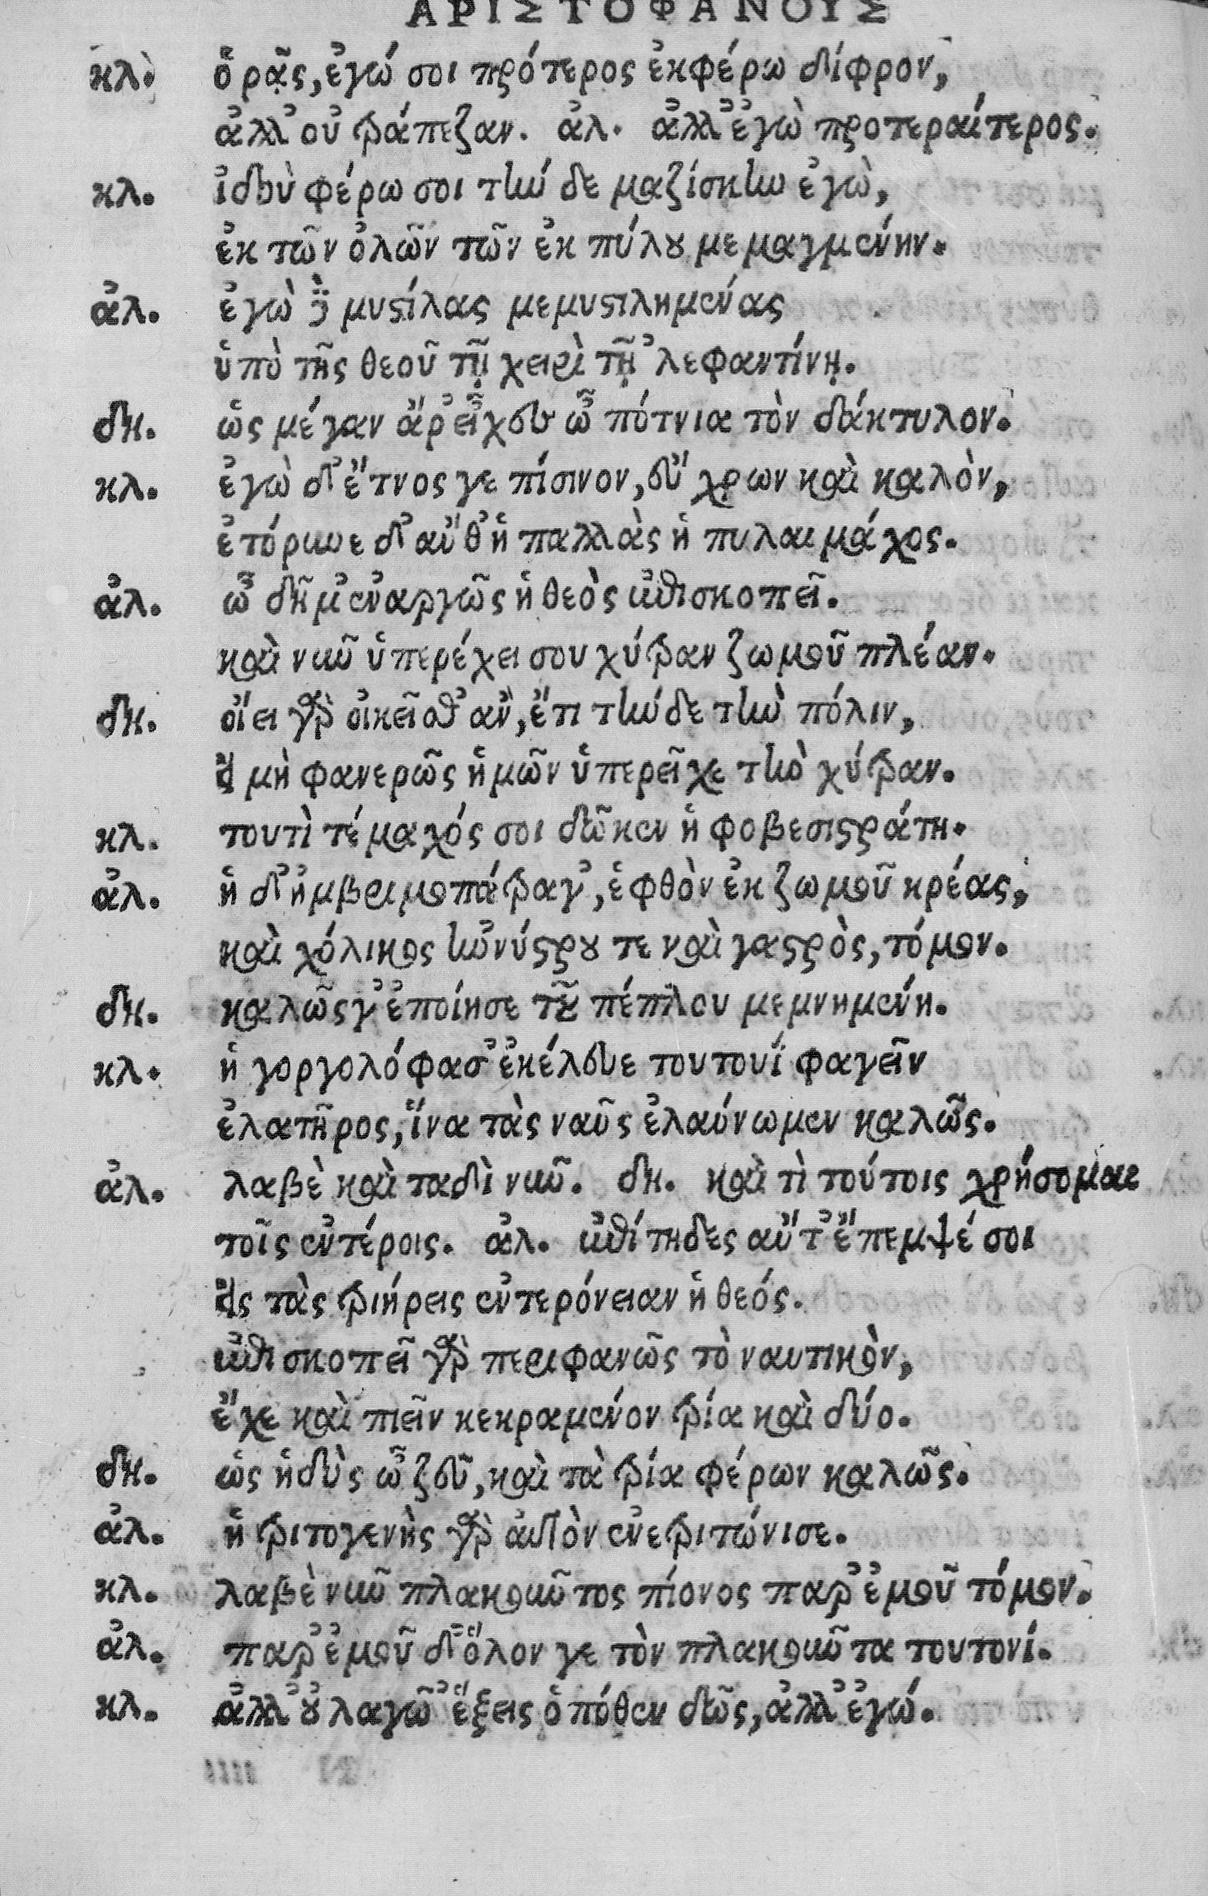 ΑΡΙΣΤΟΦΑΝΟΥΣ
κλ. ὁρᾷς, ἐγώ σοι πρότερος ἐκφέρω δίφρον,
ἀλλ' οὐ τράπεζαν. ἀλ. ἀλλ' ἐγὼ προτεραίτερος.
κλ. ἰδοὺ φέρω σοι τήν δε μαζίσκην ἐγὼ,
ἐκ τῶν ὀλῶν τῶν ἐκ πύλου μεμαγμένην.
ἀλ. ἐγὼ δὲ μυστίλας μεμυστιλημένας
ὑπὸ τῆς θεοῦ τῇ χειρὶ τῇ 'λεφαντίνῃ.
δη. ὡς μέγαν ἄρ' εἶχες ὦ πότνια τὸν δάκτυλον.
κλ. ἐγὼ δ' ἔτνος γε πίσινον, εὔχρων καὶ καλὸν,
ἐτόρωυε δ' αὔθ' ἡ παλλὰς ἡ πυλαιμάχος.
ἀλ. ὦ δῆμ' ἐναργῶς ἡ θεός ἐπισκοπεῖ.
καὶ νῦν ὑπερέχει σου χύτραν ζωμοῦ πλέαν.
δη. οἴει γὰρ οἰκεῖσθ' ἂν, ἔτι τήνδε τὴν πόλιν,
εἰ μὴ φανερῶς ἡμῶν ὑπερεῖχε τὴν χύτραν.
κλ. τουτὶ τέμαχός σοι δῶκεν ἡ φοβεσιστράτη.
ἀλ. ἡ δ' ἠμβριμοπάτραγ', ἑφθὸν ἐκ ζωμοῦ κρέας,
καὶ χόλικος ἠνύστρου τε καὶ γαστρὸς, τόμον.
δη. καλῶς γ' ἐποίησε τοῦ πέπλου μεμνημένη.
κλ. ἡ γοργολόφα σ' ἐκέλευε τουτουΐ φαγεῖν
ἐλατῆρος, ἵνα τὰς ναῦς ἐλαύνωμεν καλῶς.
ἀλ. λαβὲ καὶ ταδὶ νῦν. δη. καὶ τὶ τούτοις χρήσομαι
τοῖς ἐντέροις. ἀλ. ἐπίτηδες αὔτ' ἔπεμψέ σοι
εἰς τὰς τριήρεις ἐντερόνειαν ἡ θεός.
ἐπισκοπεῖ γὰρ περιφανῶς τὸ ναυτικὸν,
ἔχε καὶ πιεῖν κεκραμένον τρία καὶ δύο.
δη. ὡς ἡδὺς ὦ ζεῦ, καὶ τὰ τρία φέρων καλῶς.
ἀλ. ἡ τριτογενὴς γὰρ αὐτὸν ἐνετριτώνισε.
κλ. λαβὲ νῦν πλακοῦντος πίονος παρ' ἐμοῦ τόμον.
ἀλ. παρ' ἐμοῦ δ' ὅλον γε τὸν πλακοῦντα τουτονί.
κλ. ἀλλ' οὐ λαγῶ' ἕξεις ὁπόθεν δῶς, ἀλλ' ἐγώ.